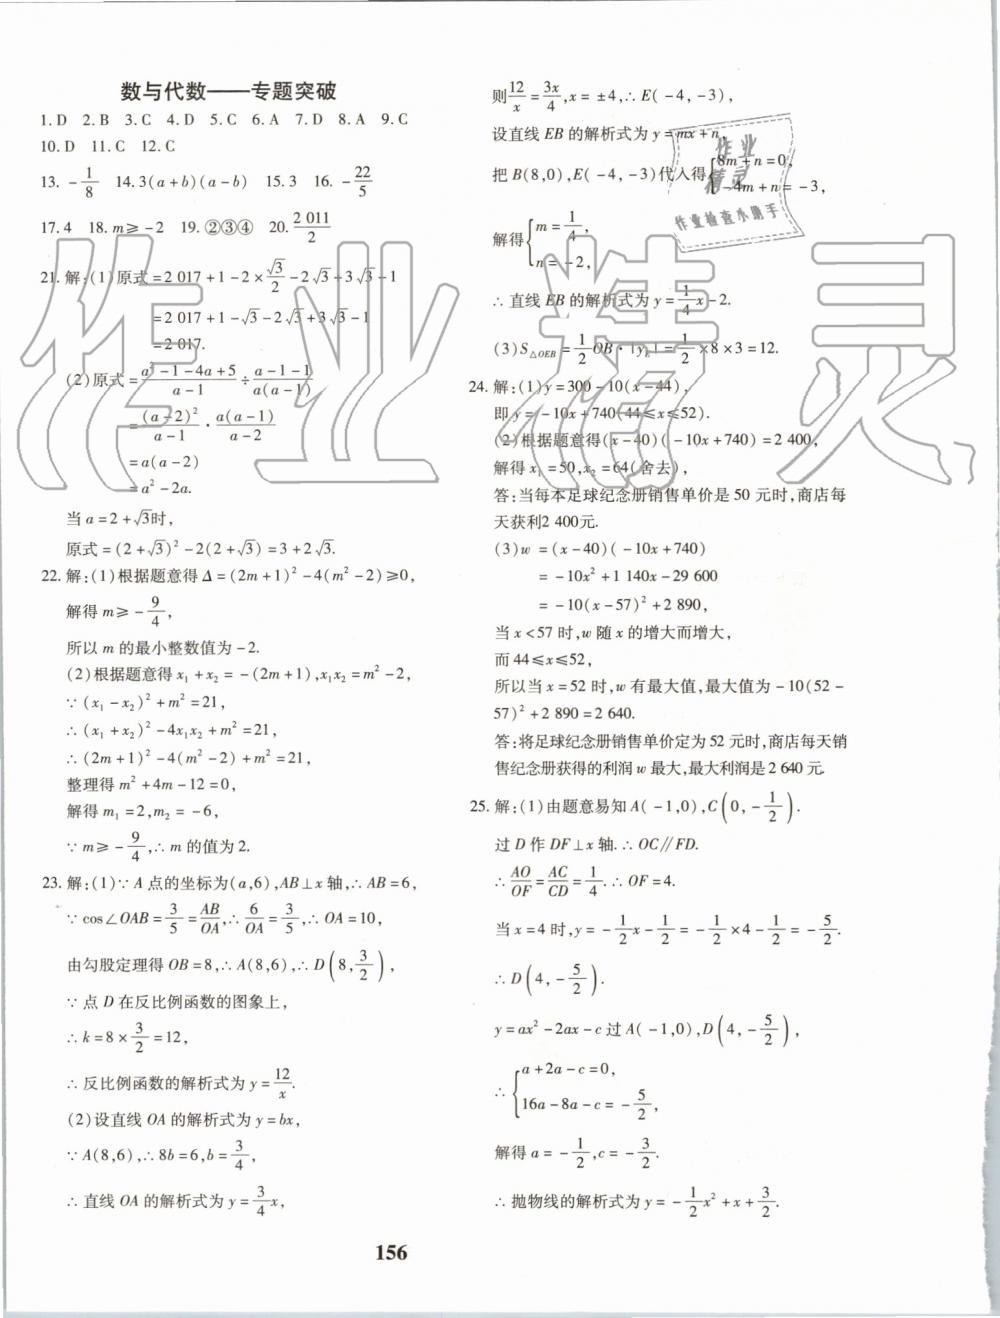 数与代数——专题突破
1. D  2. B  3. C  4. D  5. C  6. A  7. D  8. A  9. C
10. D  11. C  12. C
13. -1/8  14. 3(a+b)(a-b)  15. 3  16. -22/5
17. 4  18. m≥-2  19. ②③④  20. 2 011/2
21. 解:(1)原式=2 017+1-2×√3/2-2√3+3√3-1
=2 017+1-√3-2√3+3√3-1
=2 017.
(2)原式=(a²-1-4a+5)/(a-1)÷(a-1-1)/(a(a-1))
=(a-2)²/(a-1)·a(a-1)/(a-2)
=a(a-2)
=a²-2a.
当a=2+√3时,
原式=(2+√3)²-2(2+√3)=3+2√3.
22. 解:(1)根据题意得Δ=(2m+1)²-4(m²-2)≥0,
解得m≥-9/4,
所以m的最小整数值为-2.
(2)根据题意得x₁+x₂=-(2m+1),x₁x₂=m²-2,
∵(x₁-x₂)²+m²=21,
∴(x₁+x₂)²-4x₁x₂+m²=21,
∴(2m+1)²-4(m²-2)+m²=21,
整理得m²+4m-12=0,
解得m₁=2,m₂=-6,
∵m≥-9/4,∴m的值为2.
23. 解:(1)∵A点的坐标为(a,6),AB⊥x轴,∴AB=6,
∵cos∠OAB=3/5=AB/OA,∴6/OA=3/5,∴OA=10,
由勾股定理得OB=8,∴A(8,6),∴D(8,3/2),
∵点D在反比例函数的图象上,
∴k=8×3/2=12,
∴反比例函数的解析式为y=12/x.
(2)设直线OA的解析式为y=bx,
∵A(8,6),∴8b=6,b=3/4,
∴直线OA的解析式为y=3/4x,
则12/x=3x/4,x=±4,∴E(-4,-3),
设直线EB的解析式为y=mx+n,
把B(8,0),E(-4,-3)代入得{8m+n=0,
-4m+n=-3,
解得{m=1/4,
n=-2,
∴直线EB的解析式为y=1/4x-2.
(3)S△OEB=1/2OB·|yE|=1/2×8×3=12.
24. 解:(1)y=300-10(x-44),
即y=-10x+740(44≤x≤52).
(2)根据题意得(x-40)(-10x+740)=2 400,
解得x₁=50,x₂=64(舍去),
答:当每本足球纪念册销售单价是50元时,商店每
天获利2 400元.
(3)w=(x-40)(-10x+740)
=-10x²+1 140x-29 600
=-10(x-57)²+2 890,
当x<57时,w随x的增大而增大,
而44≤x≤52,
所以当x=52时,w有最大值,最大值为-10(52-
57)²+2 890=2 640.
答:将足球纪念册销售单价定为52元时,商店每天销
售纪念册获得的利润w最大,最大利润是2 640元.
25. 解:(1)由题意易知A(-1,0),C(0,-1/2).
过D作DF⊥x轴.∴OC∥FD.
∴AO/OF=AC/CD=1/4.∴OF=4.
当x=4时,y=-1/2x-1/2=-1/2×4-1/2=-5/2.
∴D(4,-5/2).
y=ax²-2ax-c过A(-1,0),D(4,-5/2),
∴{a+2a-c=0,
16a-8a-c=-5/2,
解得a=-1/2,c=-3/2.
∴抛物线的解析式为y=-1/2x²+x+3/2.
156
作业精灵
作业
精灵
作业检查小助手